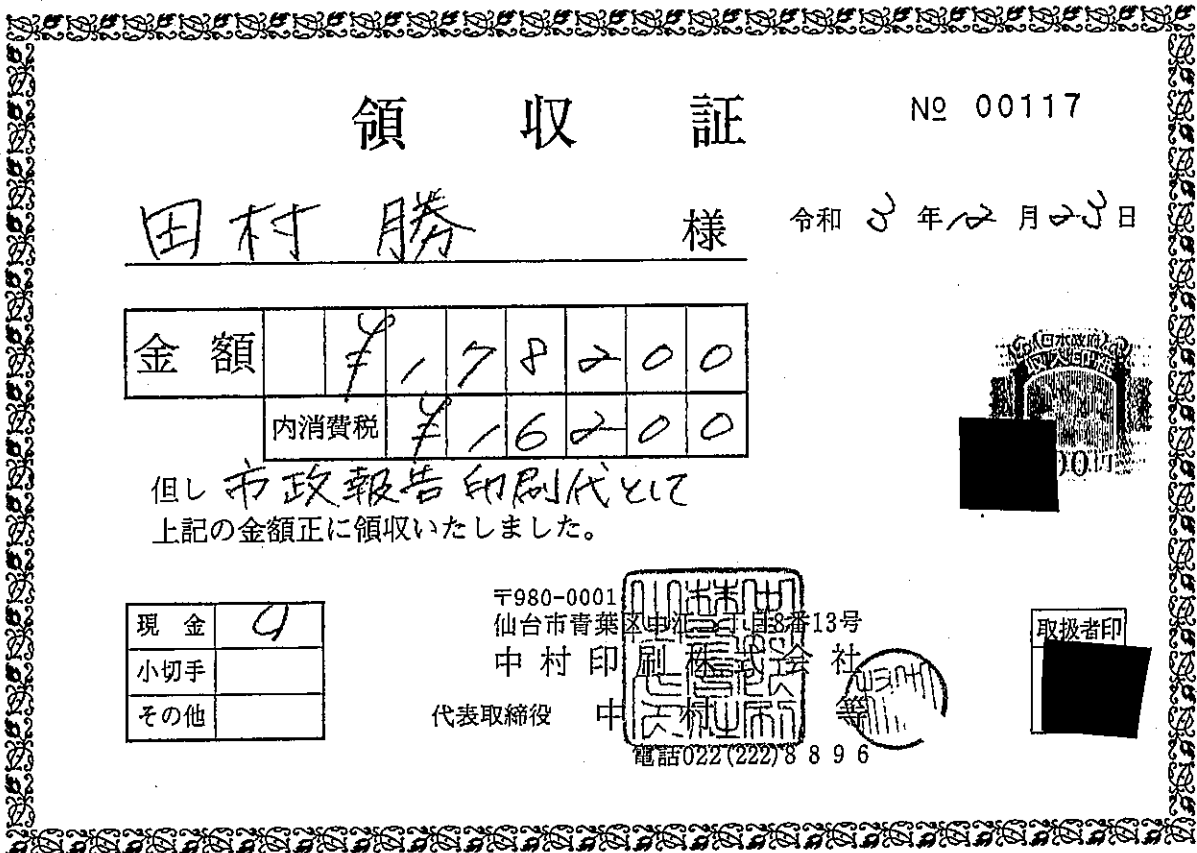 領収証
№ 00117
田村 勝 様
令和 3 年 12 月 23 日
金額 ¥178200
内消費税 ¥16200
但し 市政報告印刷代として
上記の金額正に領収いたしました。
日本政府
現金
小切手
その他
〒980-0001
仙台市青葉区中江二丁目8番13号
中村印刷株式会社
代表取締役 中村 等
電話022(222)8896
取扱者印